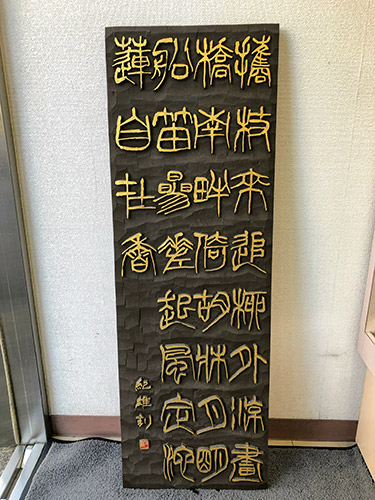 攜杖來追柳外涼畫
橋南畔倚胡牀月明
船笛參差起風定池
蓮自在香
紀雄刻